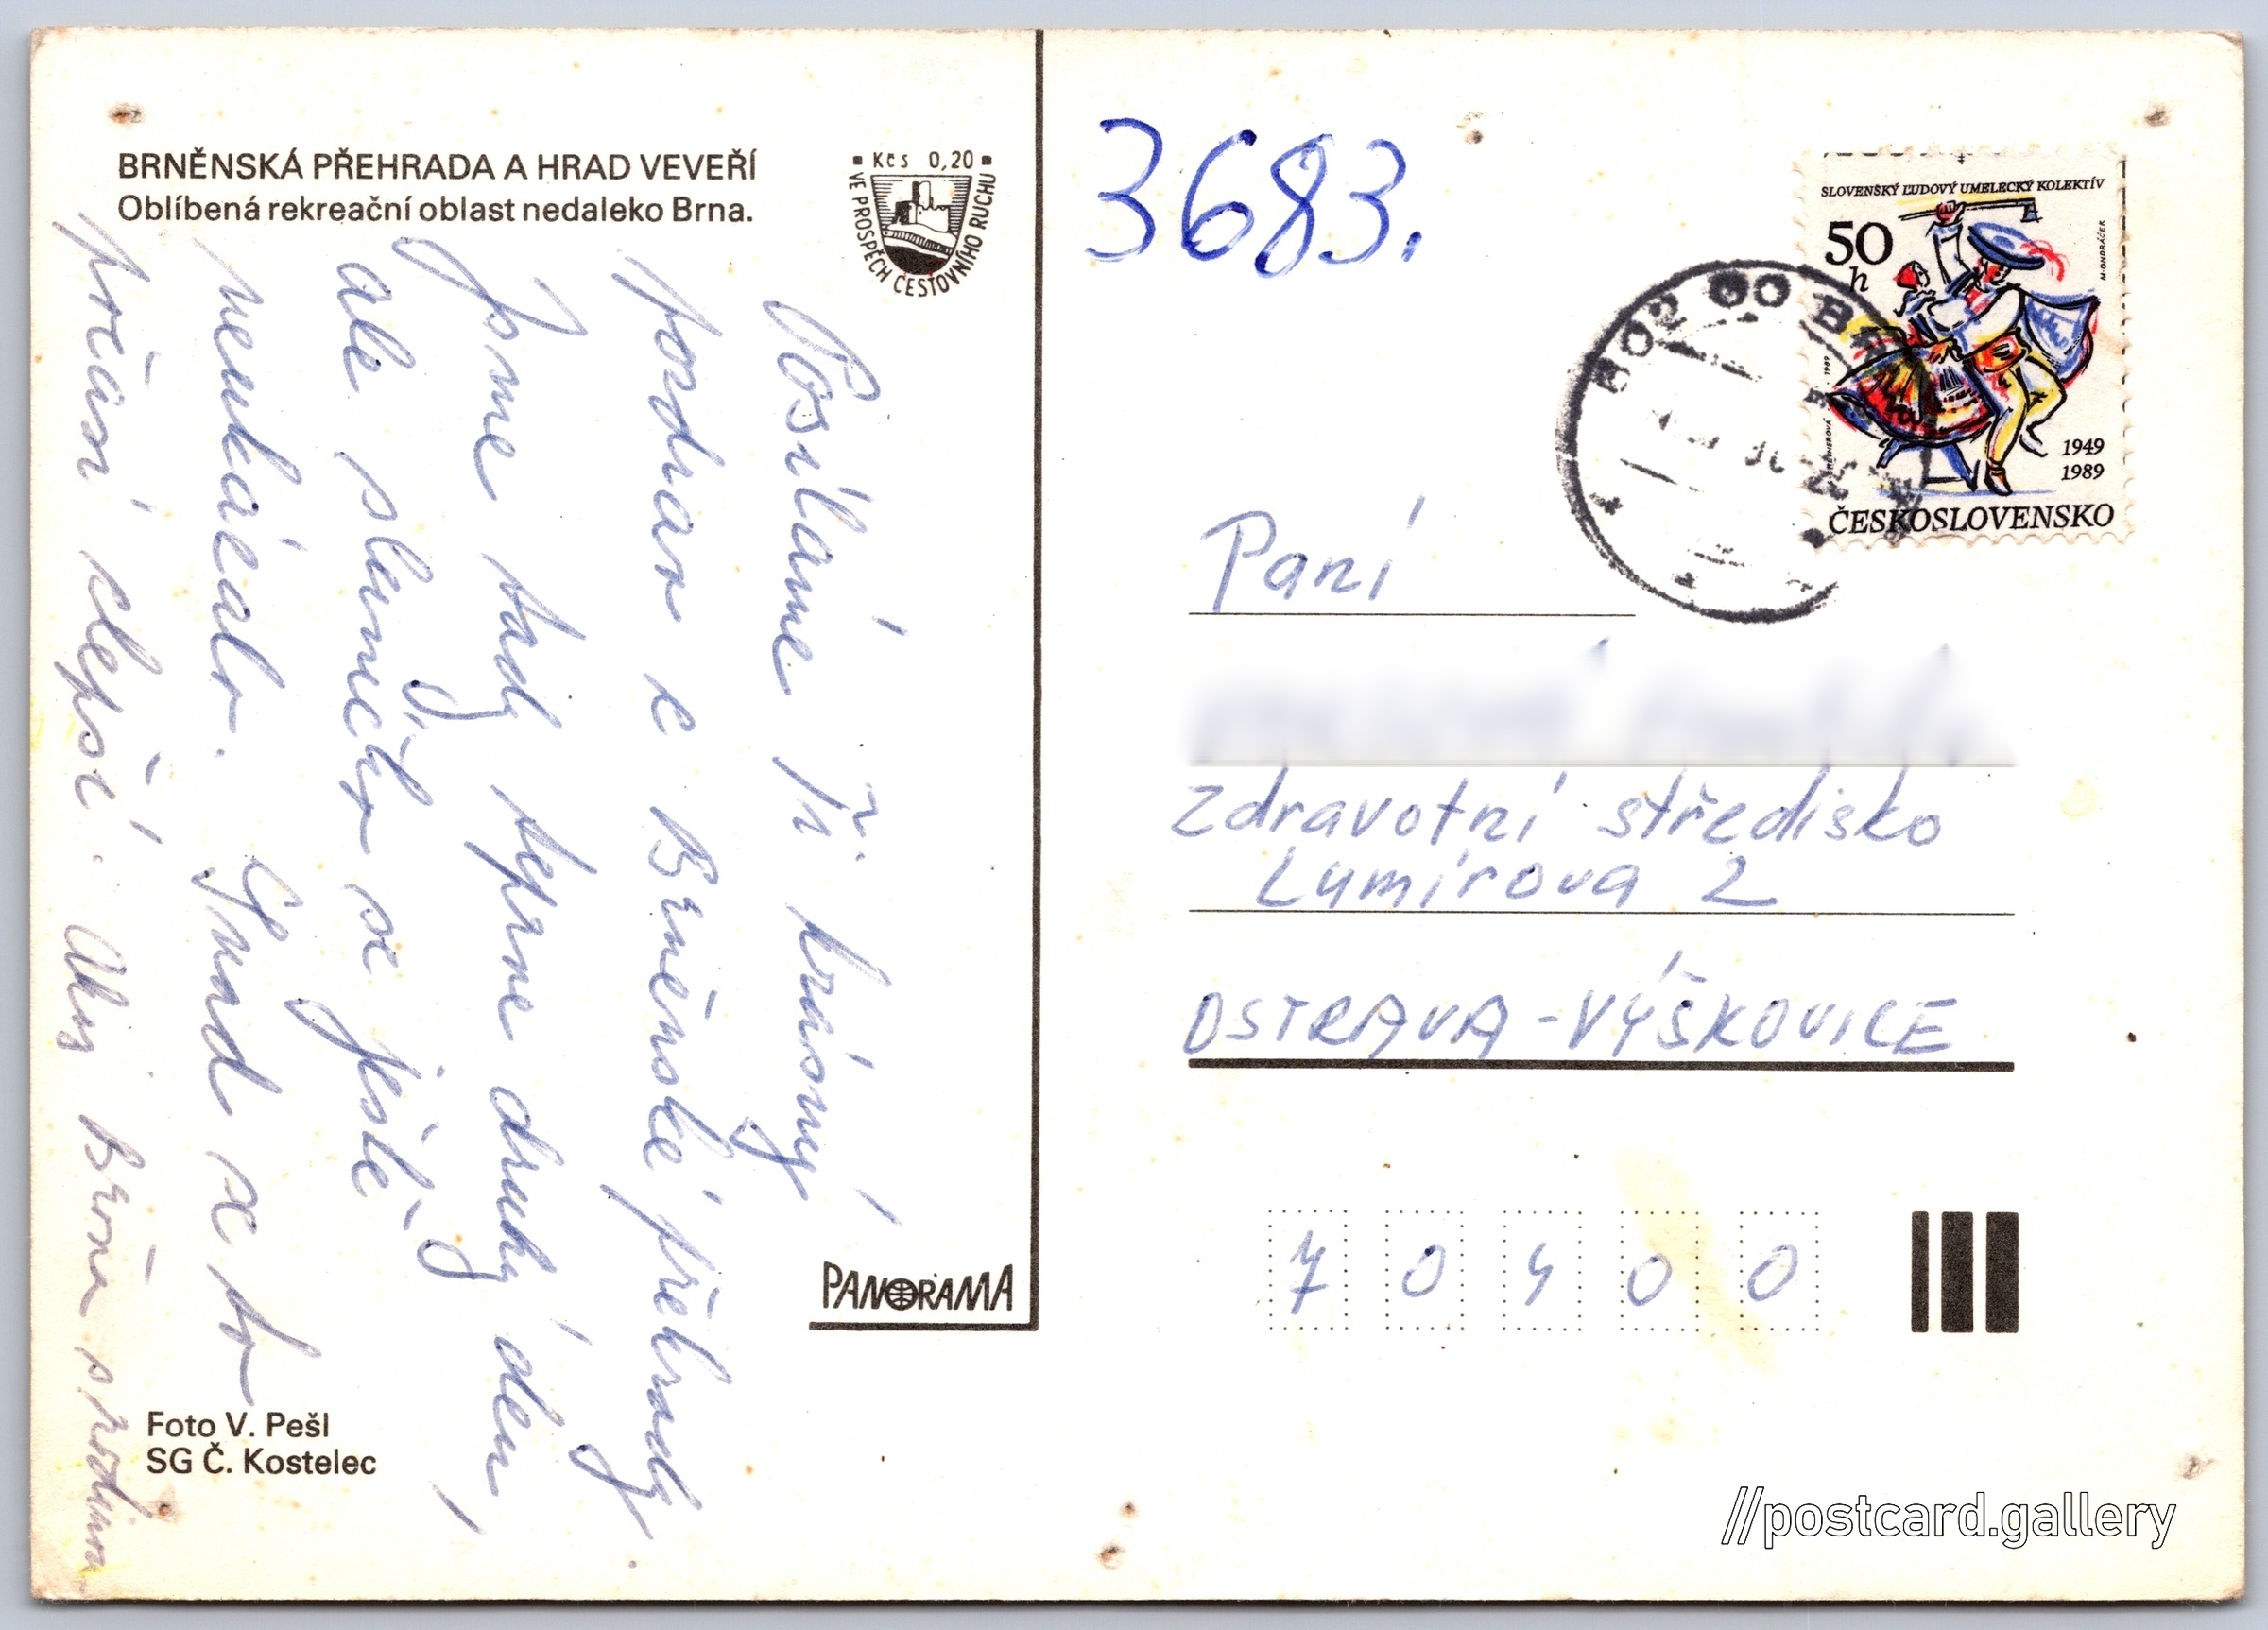 BRNĚNSKÁ PŘEHRADA A HRAD VEVEŘÍ
Oblíbená rekreační oblast nedaleko Brna.
Kčs 0,20
VE PROSPĚCH CESTOVNÍHO RUCHU
Posíláme Ti krásný
pozdrav z Brněnské přehrady.
Jsme tady teprve druhý den,
ale sluníčko se ještě
neukázalo. Snad se to
prčasí zlepší. Ahoj rodina
PANORAMA
Foto V. Pešl
SG Č. Kostelec
3683.
SLOVENSKÝ ĽUDOVÝ UMELECKÝ KOLEKTÍV
50
h
M. ONDRÁČEK
1989
1949
1989
ČESKOSLOVENSKO
602 00 BR
Paní
Zdravotní středisko
Lumírova 2
OSTRAVA-VÝŠKOVICE
7 0 4 0 0
//postcard.gallery